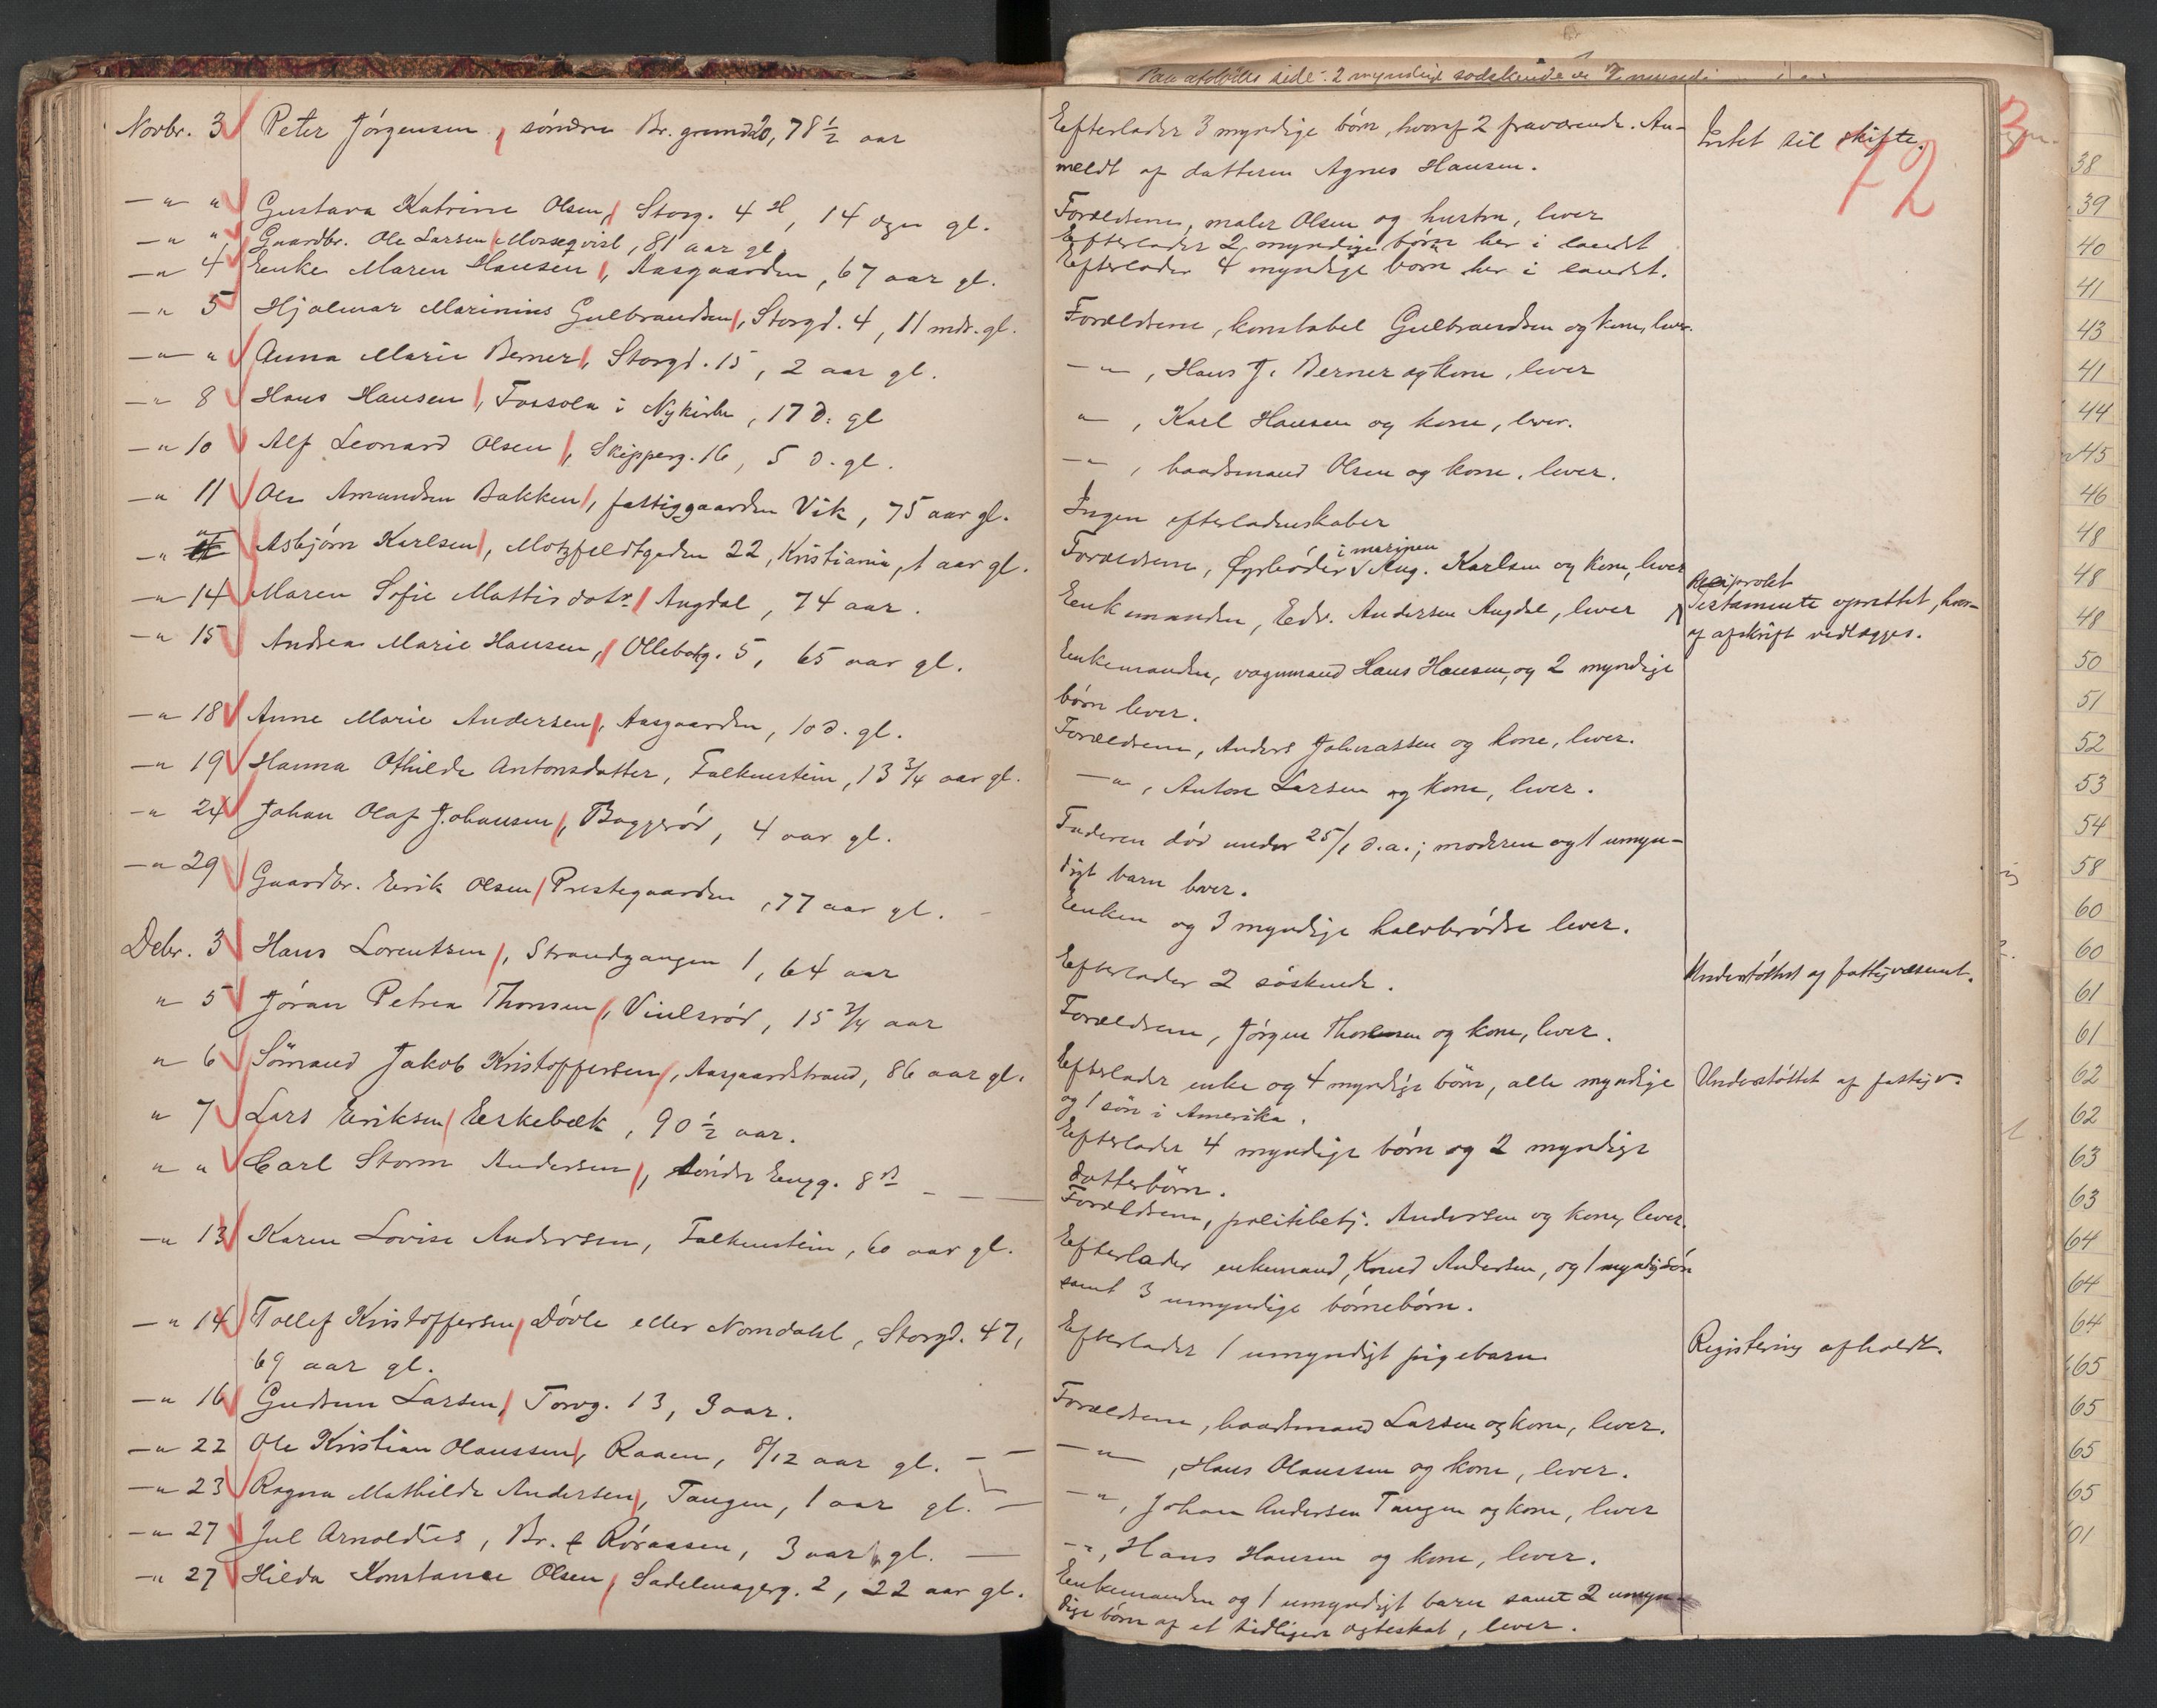 Novbr. 3 Peter Jørgensen, søndre Br. grund 20, 78 1/2 aar
—„ „ Gustava Katrine Olsen, Storg. 4 H, 14 dgr gl.
—„ „ Gaardbr. Ole Larsen Morseqvist, 81 aar gl.
—„ 4 Enke Maren Hansen, Aasgaarden, 67 aar gl.
—„ 5 Hjalmar Marinius Gulbrandsen, Storgd. 4, 11 mdr. gl.
—„ „ Anna Marie Berner, Storgd. 15, 2 aar gl.
—„ 8 Hans Hansen, Fossola i Nykirke, 17 d. gl
—„ 10 Alf Leonard Olsen, Skipperg. 16, 5 d. gl.
—„ 11 Ole Amundsen Bakken, fattiggaarden Vik, 75 aar gl.
—„ Asbjørn Karlsen, Motzfeldtgaden 22, Kristiania, 1 aar gl.
—„ 14 Maren Sofie Mattisdatr. Augdal, 74 aar.
—„ 15 Andrea Marie Hansen, Ollebakg. 5, 65 aar gl.
—„ 18 Anne Marie Andersen, Aasgaarden, 10 d. gl.
—„ 19 Hanna Othilde Antonsdatter, Falkensten, 13 3/4 aar gl.
—„ 24 Johan Olaf Johansen, Baggerød, 4 aar gl.
—„ 29 Gaardbr. Erik Olsen Prestegaarden, 77 aar gl.
Debr. 3 Hans Lorentzen, Strandgangen 1, 64 aar
„ 5 Jøran Petrea Thorsen, Viulsrød, 15 3/4 aar
„ 6 Sømand Jakob Kristoffersen, Aasgaardstrand, 86 aar gl.
„ 7 Lars Eriksen Eskebæk, 90 1/2 aar.
„ „ Carl Storm Andersen, søndre Engg. 8
—„ 13 Karen Lovise Andersen, Falkenstein, 60 aar gl.
—„ 14 Tollef Kristoffersen Døvle eller Nomdahl, Storgd. 47,
69 aar gl.
—„ 16 Gudrun Larsen, Torvg. 13, 3 aar.
—„ 22 Ole Kristian Olaussen, Raaen, 8/12 aar gl.
—„ 23 Ragna Mathilde Andersen, Tangen, 1 aar gl.
—„ 27 Jul Arnoldus, Br. Røraasen, 3 aar gl.
—„ 27 Hilda Konstance Olsen, Sadelmagerg. 2, 22 aar gl.
Efterlader 3 myndige børn, hvoraf 2 fraværende. An-
meldt af datteren Agnes Hansen.
Forældrene, maler Olsen og hustru, lever
Efterlader 2 myndige børn her i landet
Efterlader 4 myndige børn her i landet.
Forældrene, konstabel Gulbrandsen og kone, lever.
—„—, Hans J. Berner og kone, lever
„, Karl Hansen og kone, lever.
—„, baadsmand Olsen og kone, lever.
Ingen efterladenskaber
i marinen
Forældrene, Fyrbøder Aug. Karlsen og kone, lever
Enkemanden, Edv. Andersen Augdal, lever
Enkemanden, vognmand Hans Hansen, og 2 myndige
børn lever.
Forældrene, Anders Johnassen og kone, lever.
—„, Anton Larsen og kone, lever.
Faderen død under 25/1 d.a.; moderen og 1 umyn-
digt barn lever.
Enken og 3 myndige halvbrødre lever.
Efterlader 2 søskende.
Forældrene, Jørgen Thorsen og kone, lever.
Efterlader enke og 4 myndige børn, alle myndige
og 1 søn i Amerika.
Efterlader 4 myndige børn og 2 myndige
datterbørn.
Forældrene, politibetj. Andersen og kone, lever.
Efterlader enkemand, Knud Andersen, og 1 myndig søn
samt 3 umyndige børnebørn.
Efterlader 1 umyndigt pigebarn
Forældrene, baadsmand Larsen og kone, lever.
—„—, Hans Olaussen og kone, lever.
—„, Johan Andersen Tangen og kone, lever
—„, Hans Hansen og kone, lever.
Enkemanden og 1 umyndigt barn samt 2 umyn-
dige børn af et tidligere ægteskab, lever.
Intet til skifte.
72
Reciprokt
Testamente oprettet, hvor-
af afskrift vedlægges.
Understøttet af fattigvæsenet.
Understøttet af fattigv.
Registering afholdt.
38
39
40
41
43
41
44
45
46
48
48
48
50
51
52
53
54
58
60
60
61
61
62
62
63
63
64
64
64
65
65
65
65
01